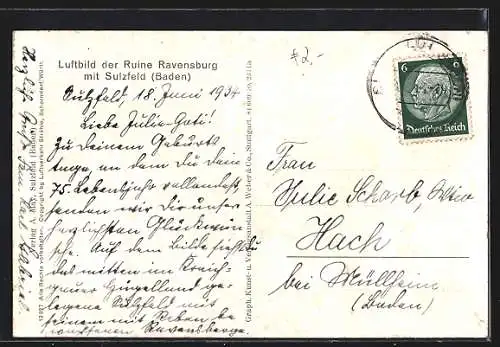 Luftbild der Ruine Ravensburg
mit Sulzfeld (Baden)
Sulzfeld, 18. Juni 1934
Liebe Julie-Goti!
Zu Deinem Geburts
tage, an dem Du Dein
75. Lebensjahr vollendest,
senden wir Dir unsere
herzlichsten Glückwün
sche. Auf dem Bilde siehst Du
das mitten im Kraich-
gauer Hügelland ge-
legene Sulzfeld mit
seinem mit Reben be
Ravensberge.
Graph. Kunst- u. Verlagsanstalt A. Weber & Co., Stuttgart.
£2,-
6 6
Deutsches Reich
Frau
Julie Scharb, Wtw
Hach
bei Müllheim
(Baden)